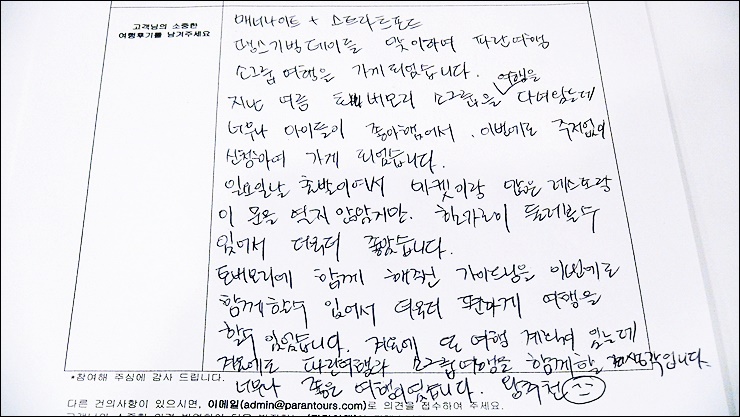 고객님의 소중한
여행후기를 남겨주세요
메네나이트 + 스트라트포드
땡스기빙데이를 맞이하여 파란여행
소그룹여행을 가게 되었습니다.
지난 여름 토버모리 소그룹을 여행을 다녀왔는데
너무나 아이들이 좋아해서. 이번에도 주저없이
신청하여 가게 되었습니다.
일요일날 출발이여서 마켓이랑 많은 레스토랑
이 문을 열지 않았지만. 한가로이 둘러볼수
있어서 더욱더 좋았습니다.
토버모리에 함께 해주신 가이드님을 이번에도
함께할수 있어서 더욱더 편하게 여행을
할수 있었습니다. 겨울에 또 여행 계획이 있는데
겨울에도 파란여행과 소그룹여행을 함께할 생각입니다.
너무나 좋은 여행이었습니다. 왕추천
*참여해 주심에 감사 드립니다.
다른 건의사항이 있으시면, 이메일(admin@parantours.com)로 의견을 접수하여 주세요.